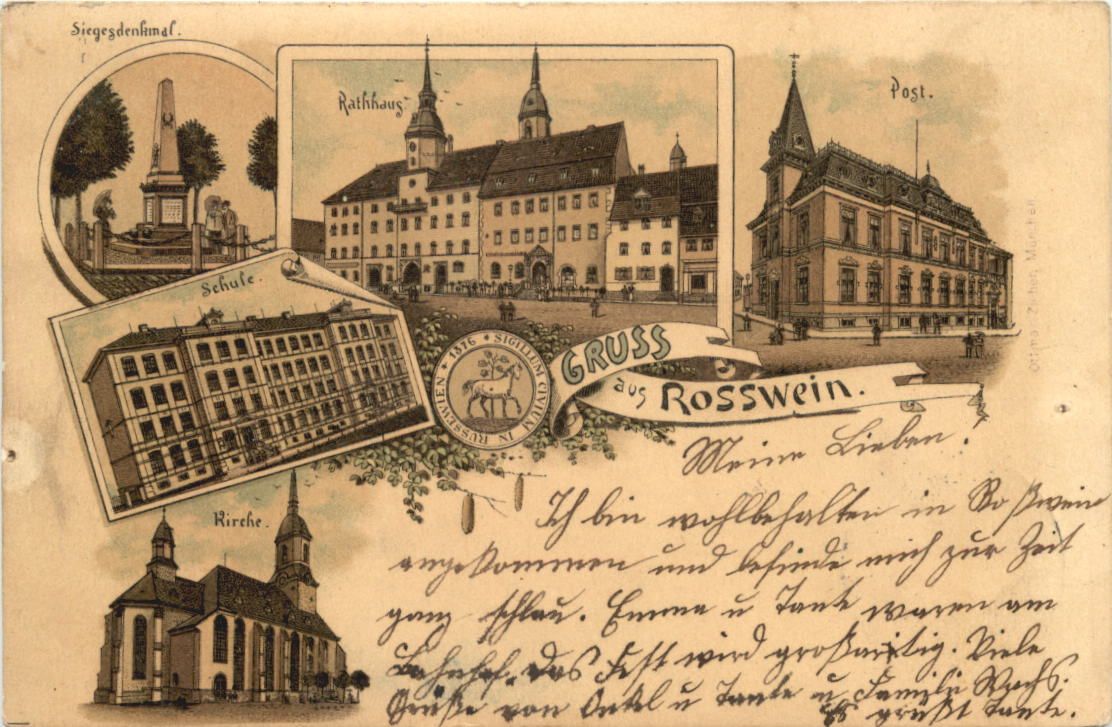 Siegesdenkmal.
Rathhaus
Post.
Schule.
SIGILLUM CIVIUM IN RUSSEWIEN * 1376 *
GRUSS
aus Rosswein.
Kirche.
Ottmar Zieher, München
Meine Lieben!
Ich bin wohlbehalten in Roßwein
angekommen und befinde mich zur Zeit
ganz schlau. Emma u Tante waren am
Bahnhof. Das Fest wird großartig. Viele
Grüße von Onkel u Tante u Familie Wachs.
Es grüßt Tante.